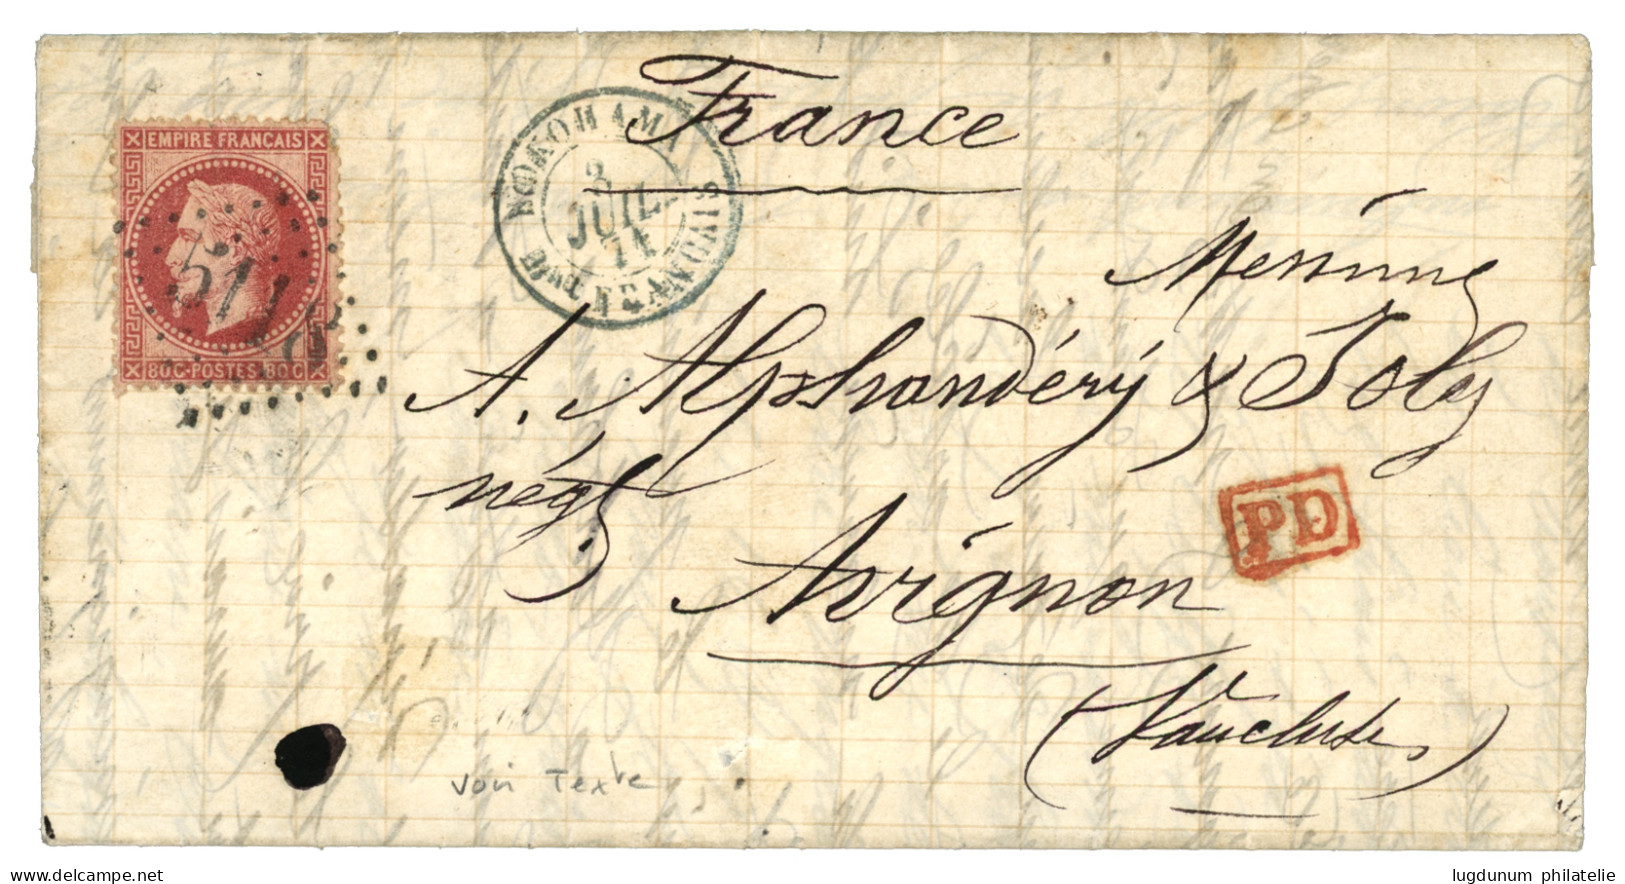 France
EMPIRE FRANCAIS
YOKOHAMA
3
JUIL.
71
Bau FRANCAIS
5118
80C-POSTES 80C
Messieurs
A. Alphandéry & Joly
négts
PD
Avignon
(Vaucluse)
voir Texte
www.delcampe.net
lugdunum philatelie